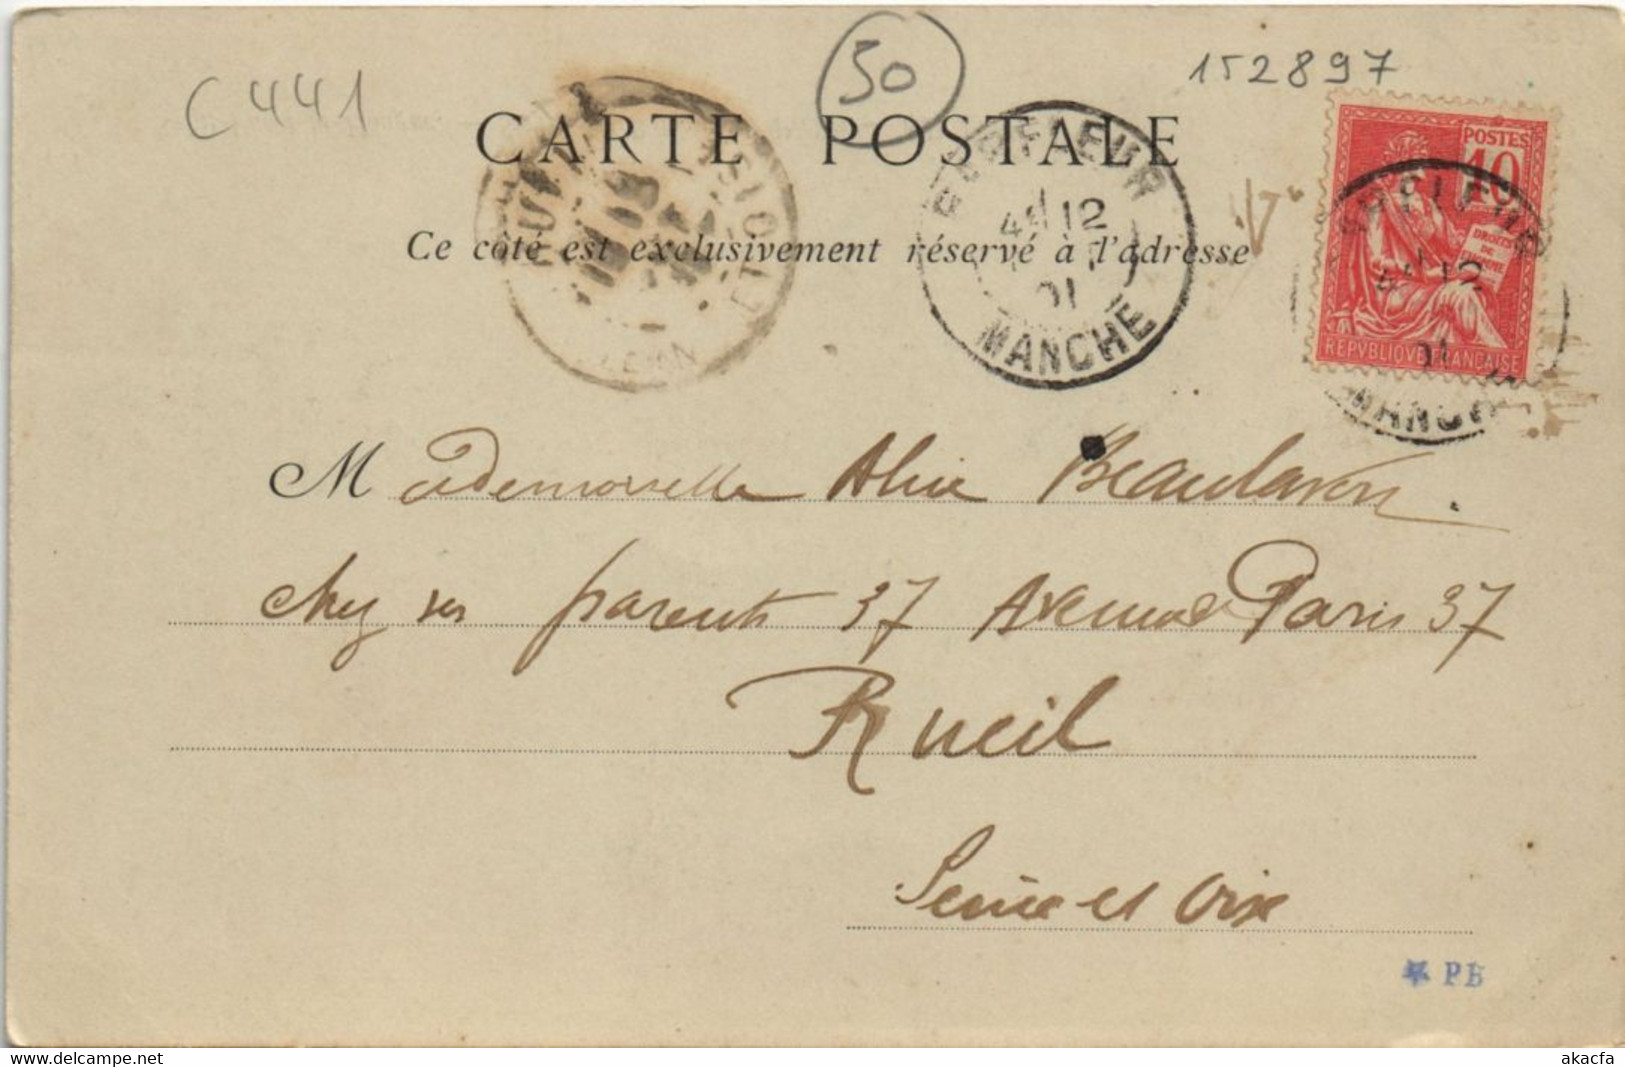 C 441
50
152897
CARTE POSTALE
Ce côté est exclusivement réservé à l'adresse
BARFLEUR
12
01
MANCHE
POSTES
10
DROITS
DE
REPVBLIQVE FRANCAISE
12
01
MANCHE
Mademoiselle Alice Beaulavon.
chez ses parents 37 Avenue Paris 37
Rueil
Seine et Oise
PB
www.delcampe.net
akacfa